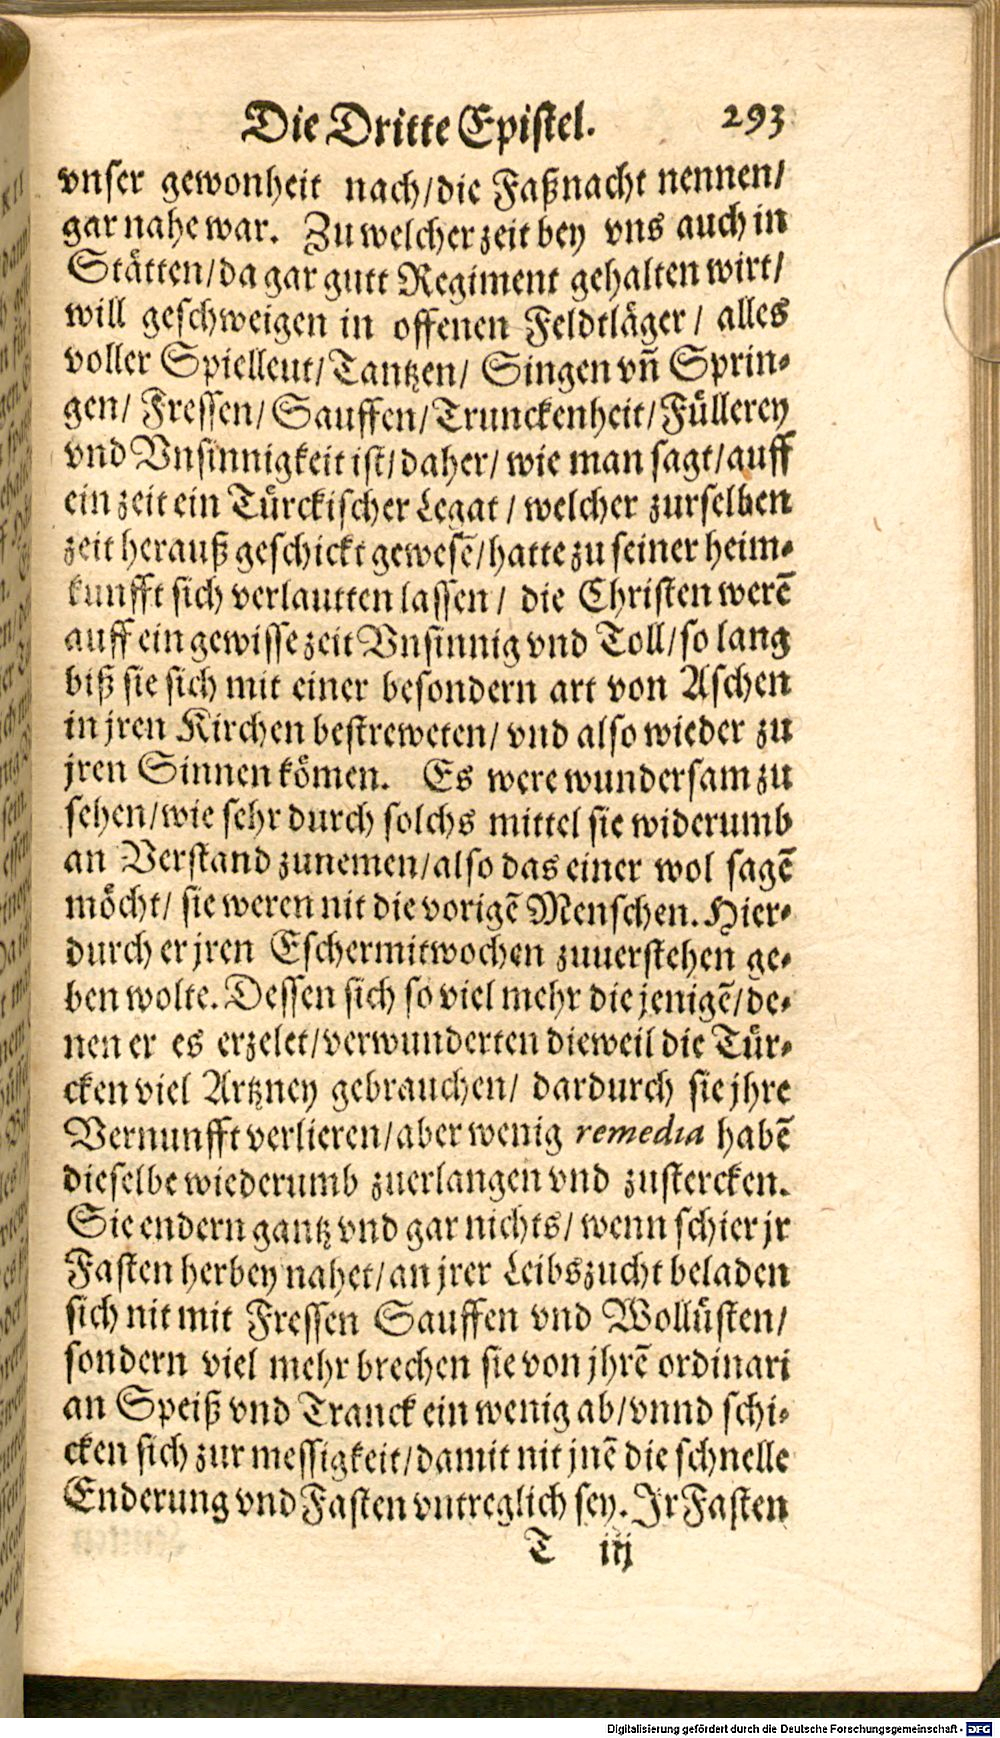 Die Dritte Epistel. 293
vnser gewonheit nach/die Faßnacht nennen/
gar nahe war. Zu welcher zeit bey vns auch in
Stätten/da gar gutt Regiment gehalten wirt/
will geschweigen in offenen Feldtläger/ alles
voller Spielleut/Tantzen/ Singen vñ Sprin-
gen/ Fressen/Sauffen/Trunckenheit/Füllerey
vnd Vnsinnigkeit ist/daher/ wie man sagt/auff
ein zeit ein Türckischer Legat / welcher zurselben
zeit herauß geschickt gewesẽ/hatte zu seiner heim-
kunfft sich verlautten lassen/ die Christen werẽ
auff ein gewisse zeit Vnsinnig vnd Toll/so lang
biß sie sich mit einer besondern art von Aschen
in jren Kirchen bestreweten/ vnd also wieder zu
jren Sinnen kömen. Es were wundersam zu
sehen/wie sehr durch solchs mittel sie widerumb
an Verstand zunemen/also das einer wol sagẽ
möcht/ sie weren nit die vorigẽ Menschen. Hier-
durch er jren Eschermitwochen zuuerstehen ge-
ben wolte. Dessen sich so viel mehr die jenigẽ/de-
nen er es erzelet/verwunderten dieweil die Tür-
cken viel Artzney gebrauchen/ dardurch sie jhre
Vernunfft verlieren/aber wenig remedia habẽ
dieselbe wiederumb zuerlangen vnd zustercken.
Sie endern gantz vnd gar nichts/ wenn schier jr
Fasten herbey nahet/an jrer Leibszucht beladen
sich nit mit Fressen Sauffen vnd Wollüsten/
sondern viel mehr brechen sie von jhrẽ ordinari
an Speiß vnd Tranck ein wenig ab/vnnd schi-
cken sich zur messigkeit/damit nit jnẽ die schnelle
Enderung vnd Fasten vntreglich sey. Jr Fasten
T iij
Digitalisierung gefördert durch die Deutsche Forschungsgemeinschaft - DFG